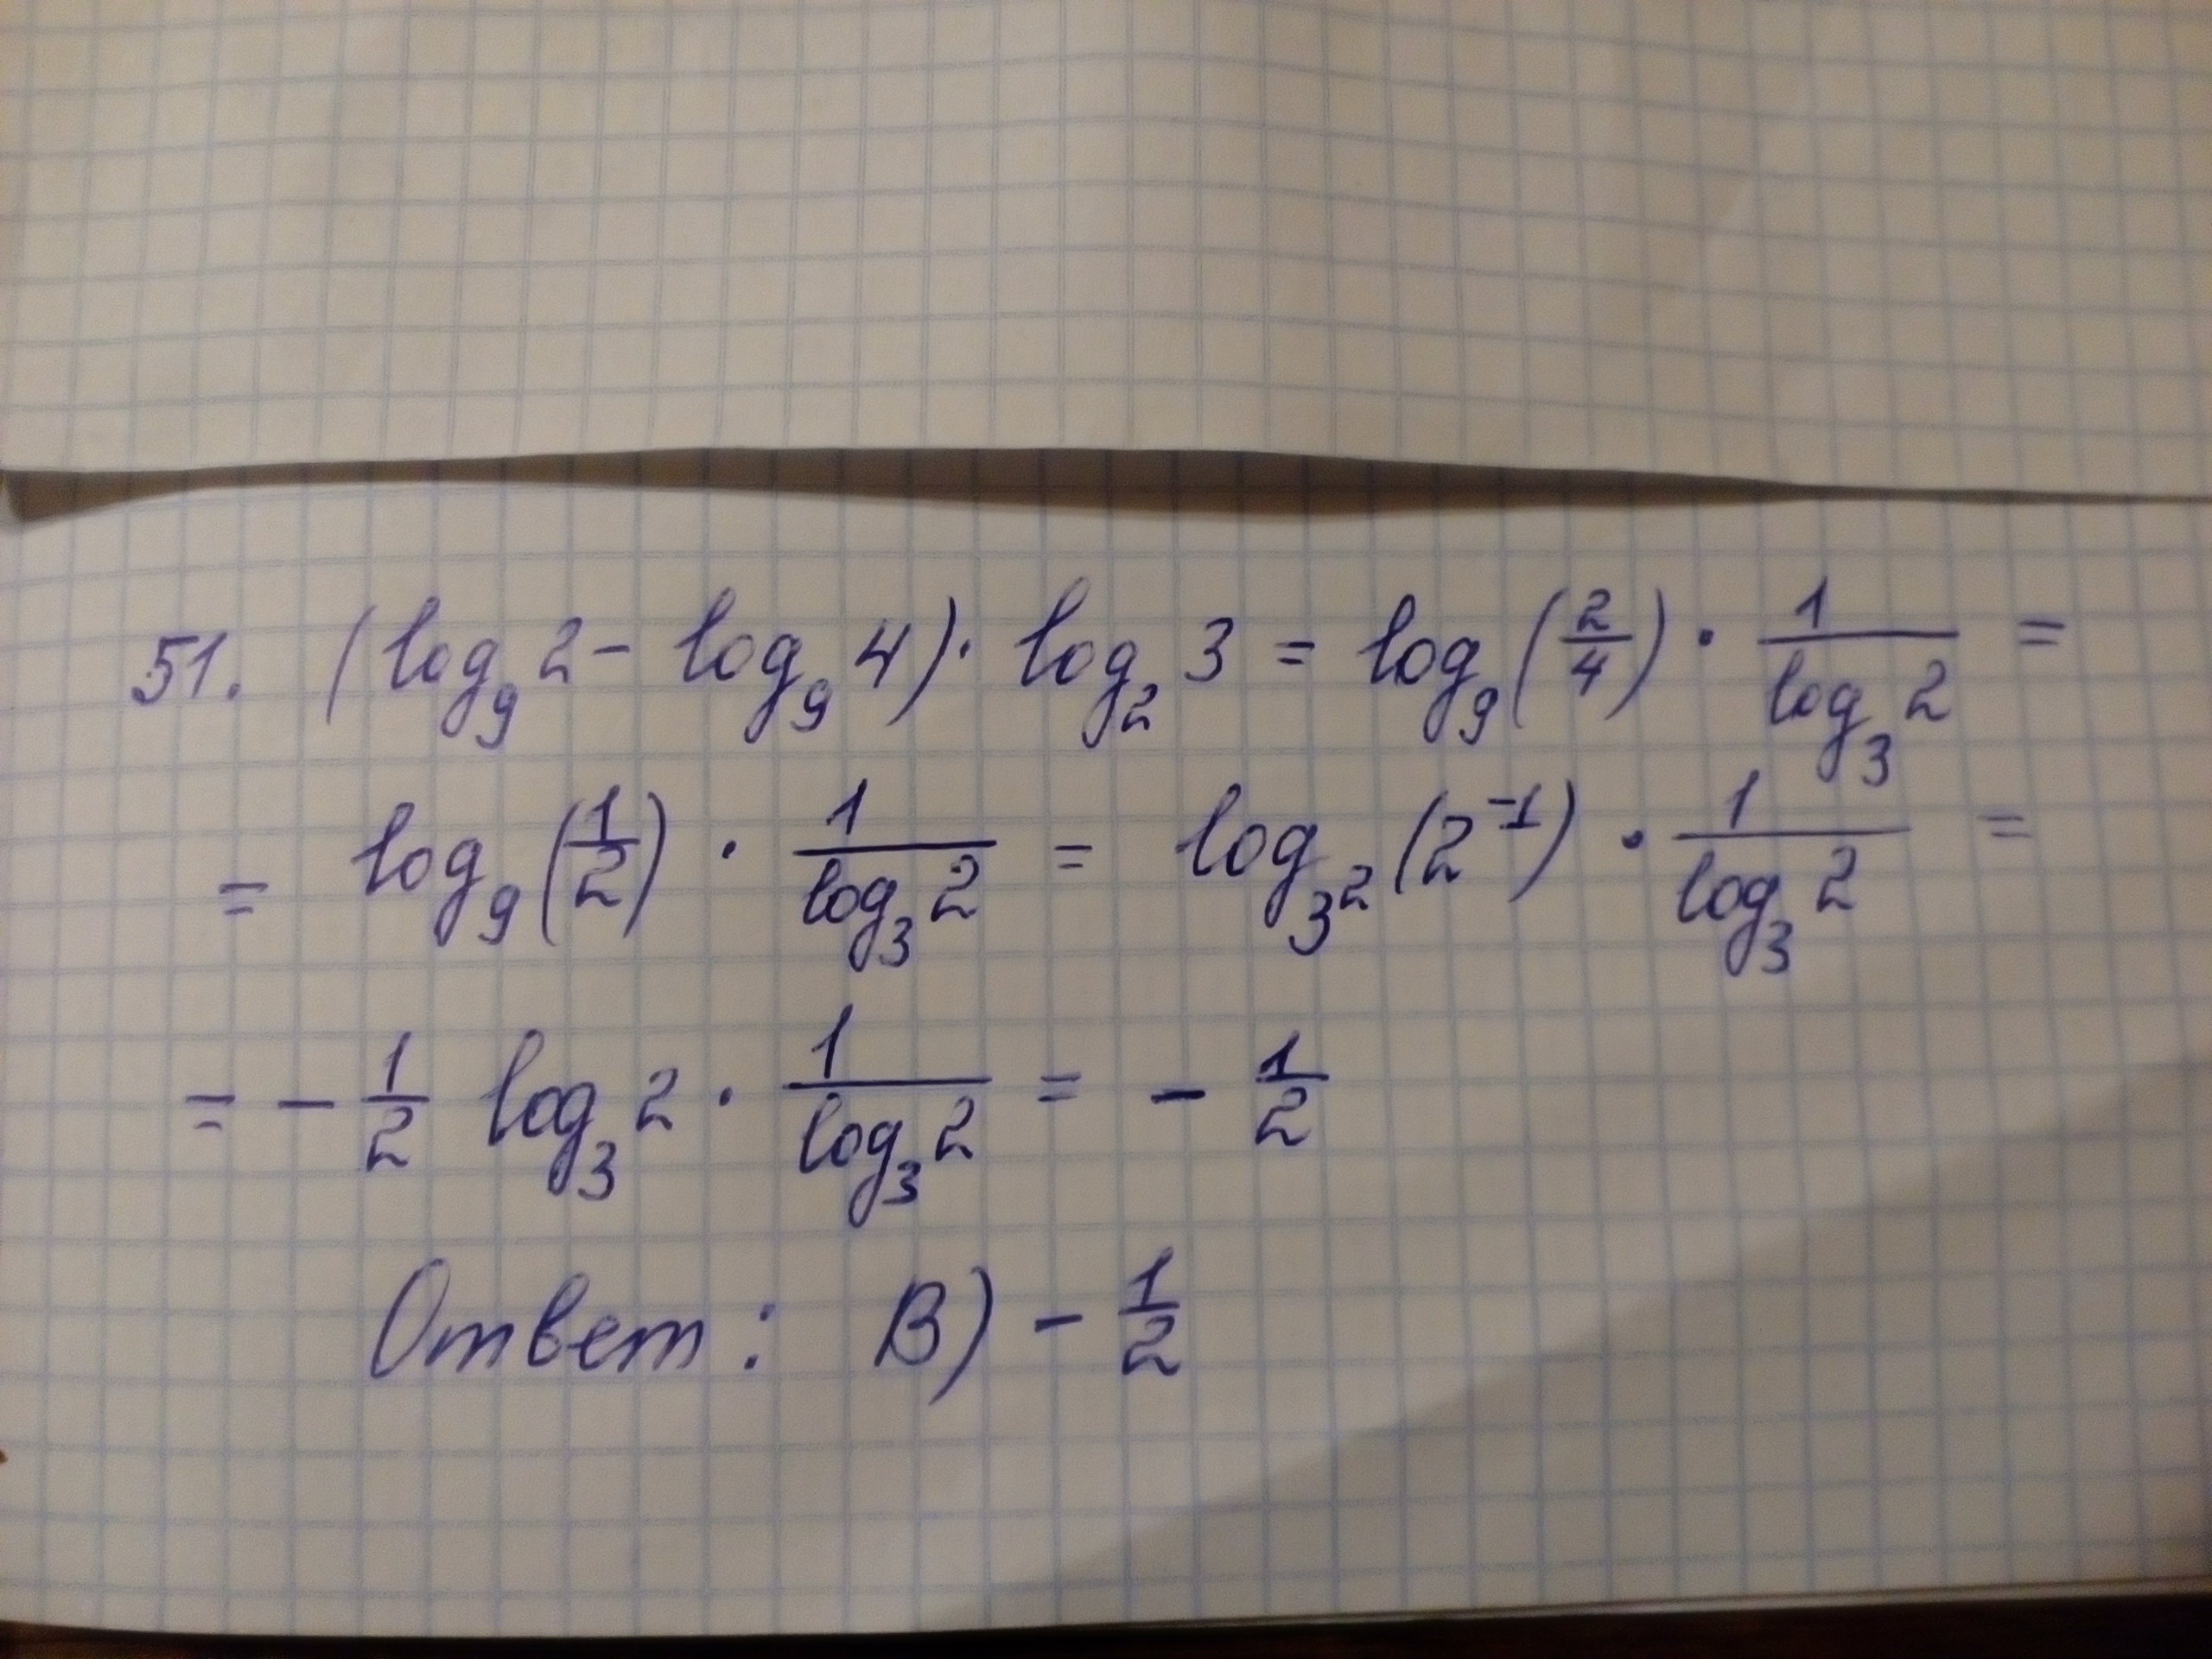 51. (log₉2 - log₉4) · log₂3 = log₉(2/4) · 1/log₃2 =
= log₉(1/2) · 1/log₃2 = log₃²(2⁻¹) · 1/log₃2 =
= - 1/2 log₃2 · 1/log₃2 = - 1/2
Ответ: В) - 1/2